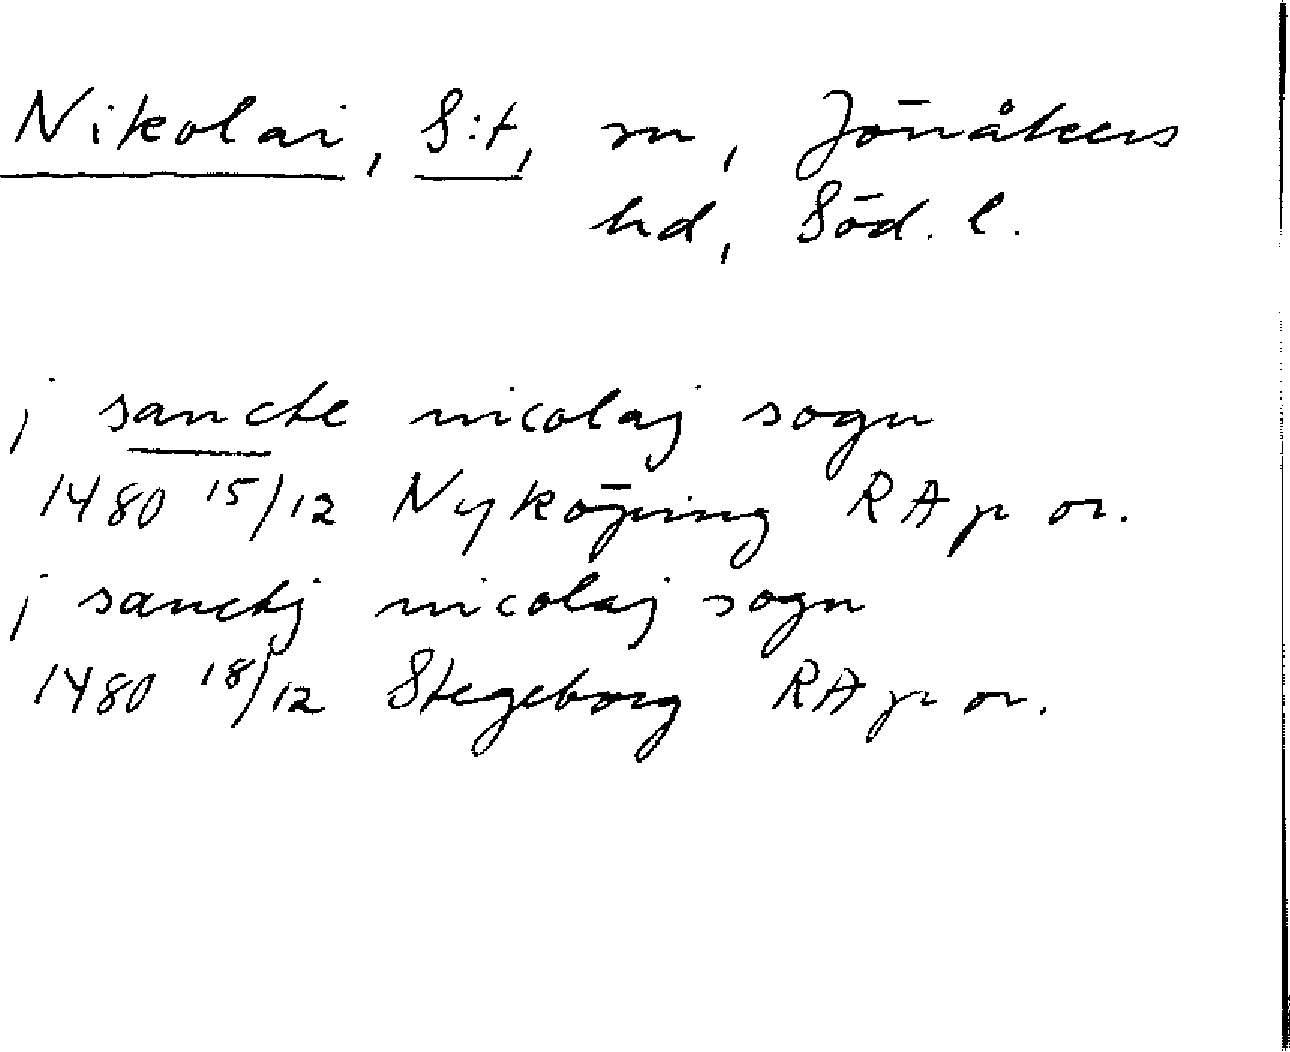 Nikolai, S:t, sn, Jönåkers
hd, Söd. l.
j sancte nicolaj sogn
1480 15/12 Nyköping RA p or.
j sanctj nicolaj sogn
1480 18/12 Stegeborg RA p or.